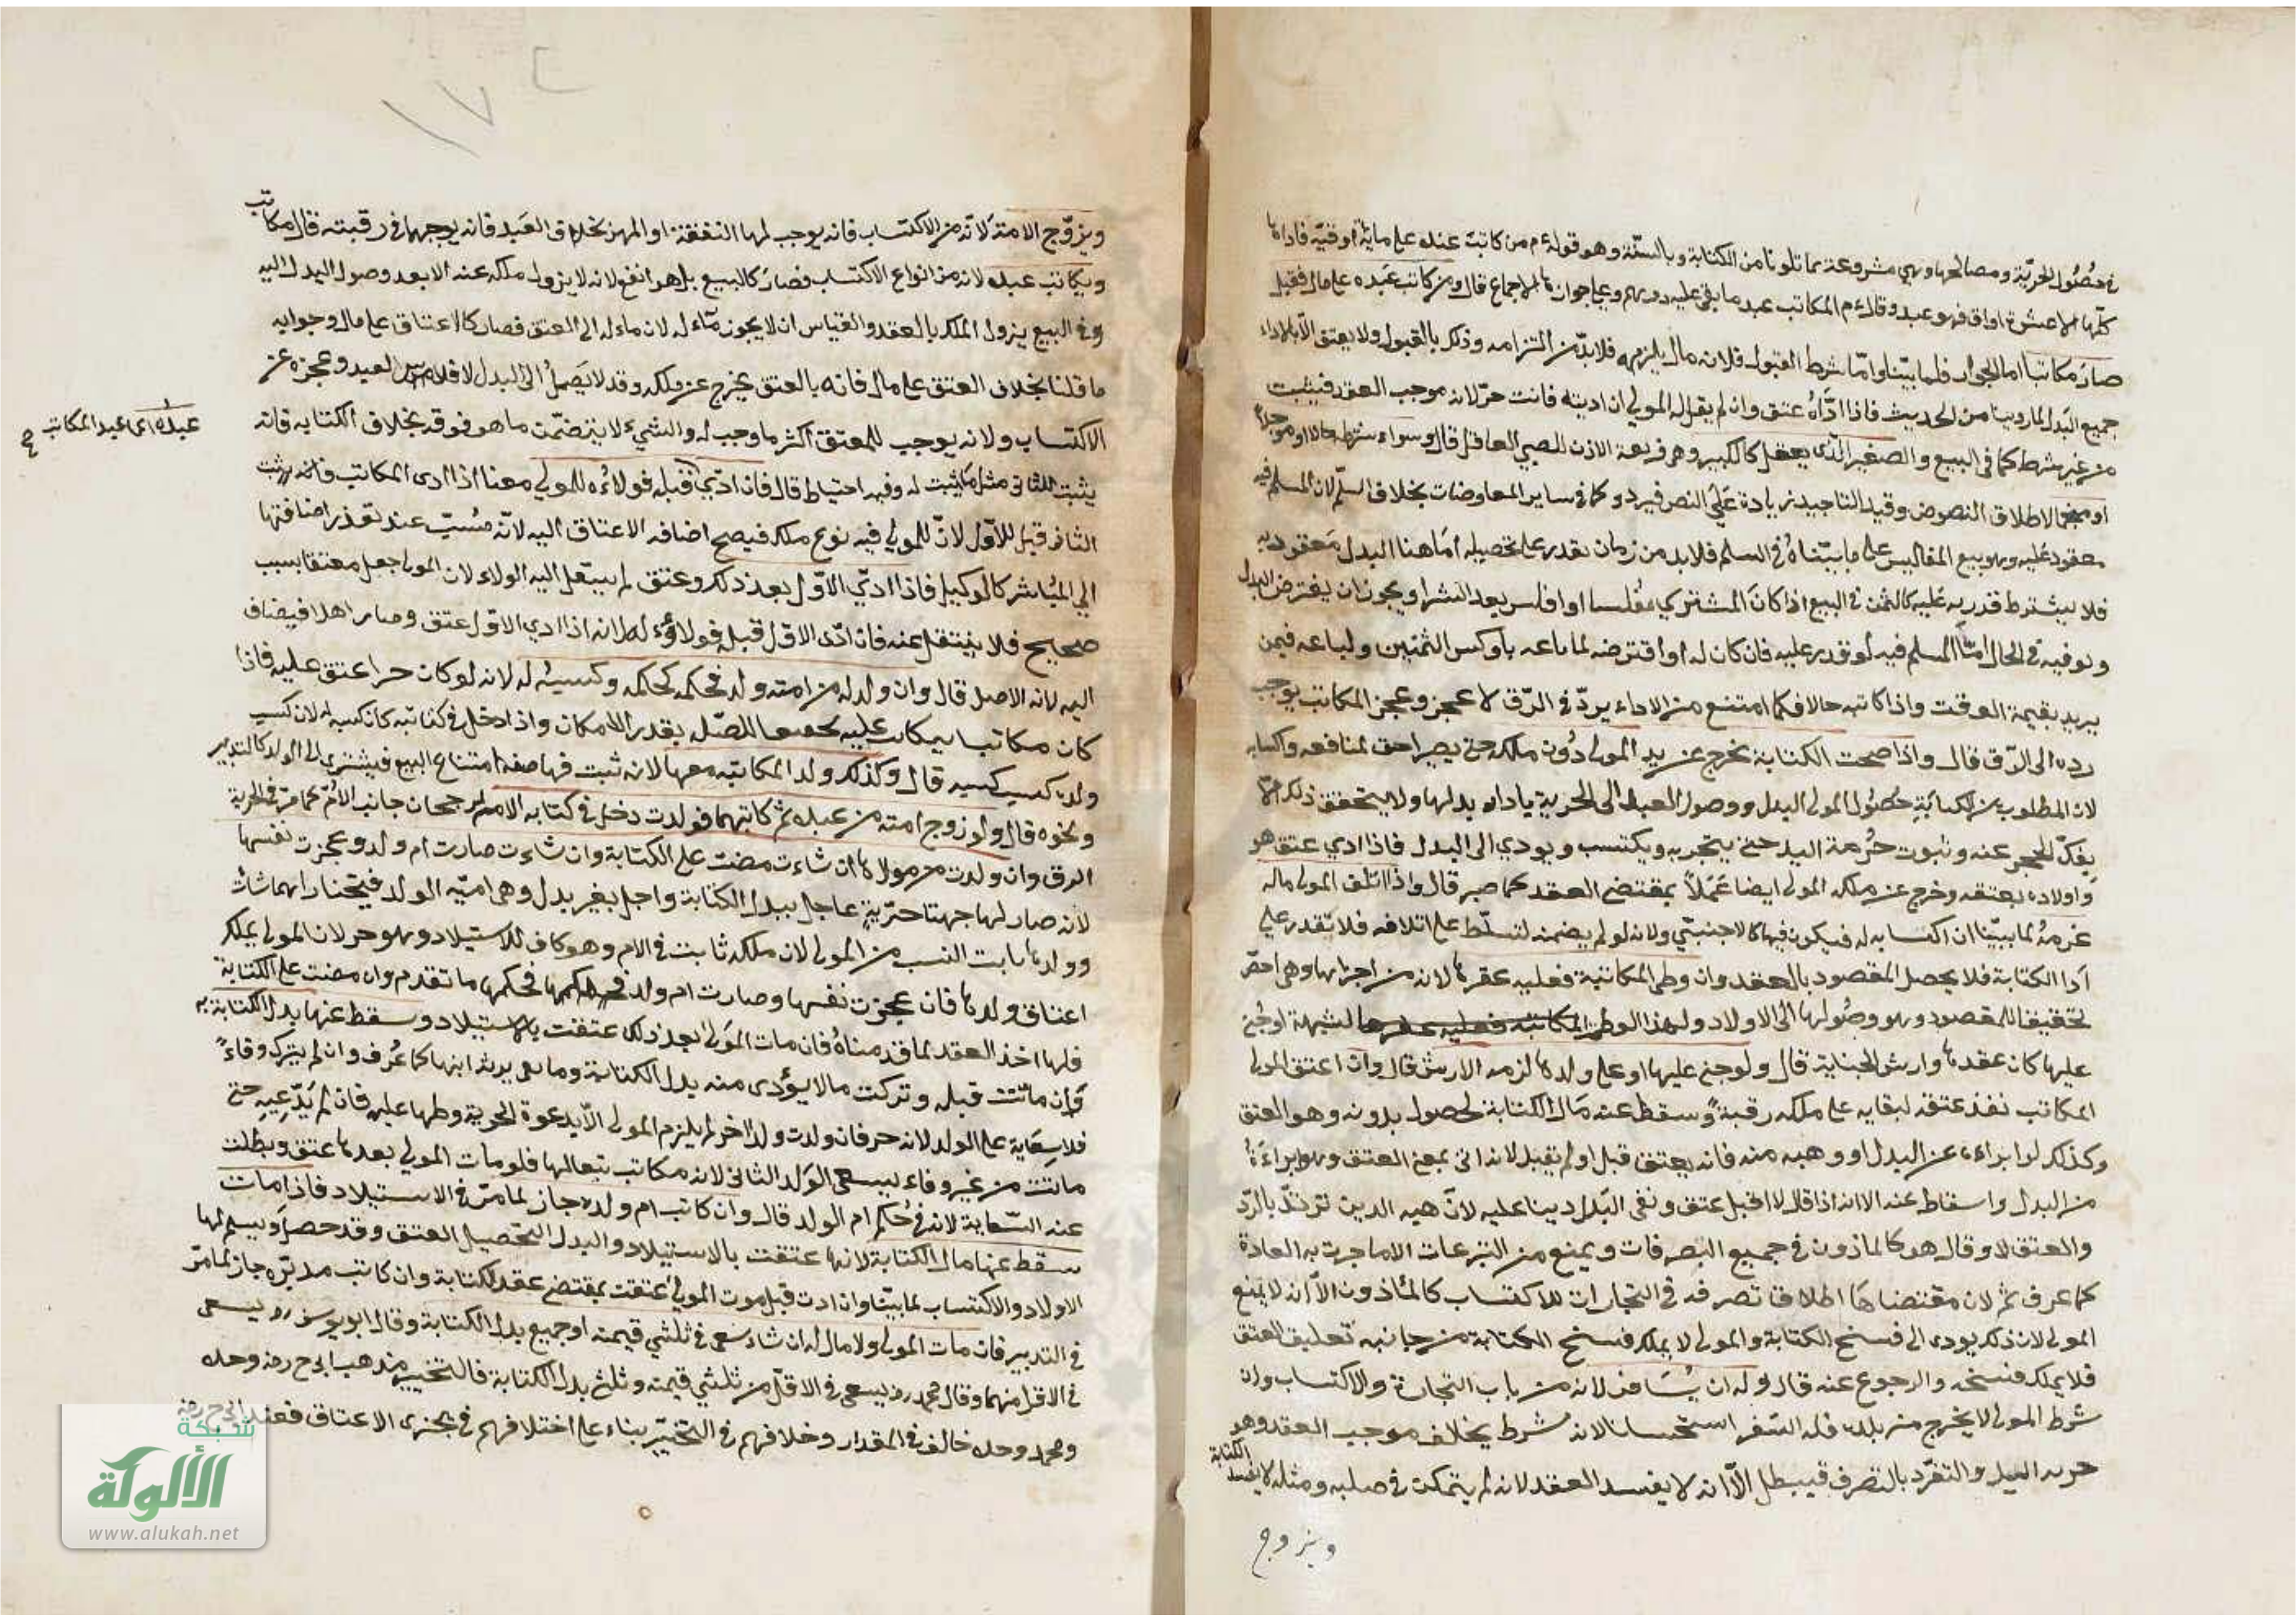 في حصول الحرية ومصالحها وهي مشروعة بما تلونا من الكتابة وبالسنة وهو قولهءم من كاتب عبده على ماية اوقية فاداها
كلها الا عشرة اواق فهو عبد وقالءم المكاتب عبد ما بقي عليه درهم وعلى جوازها الاجماع قال ومن كاتب عبده على مال فقبل
صار مكاتبا اما الجواز فلما بينا واما شرط القبول فلانه مال يلزمه فلا بد من التزامه وذلك بالقبول ولا يعتق الا باداء
جميع البدل لما روينا من الحديث فاذا اداه عتق وان لم يقل له المولى ان اديته فانت حر لانه موجب العقد فيثبت
من غير شرط كما في البيع والصغير الذي يعقل كالكبير وهي فريعة الاذن للصبي العاقل قال وسواء شرطه حالا او موجلا
او منجما لاطلاق النصوص وقيد التاجيد زيادة على النص فيرد وكما في ساير المعاوضات بخلاف السلم لان المسلم فيه
معقود عليه وهو بيع المفاليس على ما بيناه في السلم فلا بد من زمان يقدر على تحصيله اما هنا البدل معقود به
فلا يشترط قدرته عليه كالثمن في البيع اذا كان المشتري مفلسا او افلس بعد الشرا ويجوز ان يقترض البدل
ويوفيه في الحال اما المسلم فيه لو قدر عليه فان كان له او اقترضه لما باعه باوكس الثمنين ولباعه فيمن
يريد بقيمة الوقت واذا كاتبه حالا فكما امتنع من الاداء يرد في الرق لا عجز وعجز المكاتب يوجب
رده الى الرق قال واذا صحت الكتابة يخرج عن يد المولى دون ملكه حتى يصير احق بمنافعه واكسابه
لان المطلوب من الكتابة حصول المولى البدل ووصول العبد الى الحرية باداء بدلها ولا يتحقق ذلك الا
بفك الحجر عنه وثبوت حرمة اليد حتى يتجر به ويكتسب ويودي الى البدل فاذا ادي عتق هو
واولاده بعتقه وخرج عن ملك المولى ايضا عملا بمقتضى العقد كما صبر قال واذا اتلف المولى ماله
غرمه لما بينا ان اكسابه له فيكون فيها كالاجنبي ولانه لو لم يضمنه لتسلط على اتلافه فلا يقدر على
ادا الكتابة فلا يحصل المقصود بالعقد وان وطئ المكاتبة فعليه عقرها لانه من اجزايها وهي احق
تحقيقا للمقصود وهو وصولها الى الاولاد ولهذا الوطئ المكاتبة فعليه عقرها لشبهة او جنى
عليها كان عقدها وارش الجناية قال ولو جنى عليها او على ولدها لزمه الارش قال وان اعتق المولى
المكاتب نفذ عتقه لبقايه على ملكه رقبة وسقط عنه مال الكتابة لحصول بدونه وهو العتق
وكذلك لو ابراه عن البدل او وهبه منه فانه يعتق قبل او لم يقبل لانه اتى بمعنى العتق وهو ابراءة
من البدل واسقاط عنه الا انه اذا قال لا اقبل عتق وبقى البدل دينا عليه لان هبة الدين ترتد بالرد
والعتق لا وقال هو كالماذون في جميع التصرفات ويمنع من التبرعات الا ما جرت به العادة
كما عرف ثم لان مقتضاها اطلاقا تصرفه في التجارات للاكتساب كالمأذون الا ان لا يمنع
المولى لان ذلك يودى الى فسخ الكتابة والمولى لا يملك فسخ الكتابة من جانبه تعليق العتق
فلا يملك فسخه والرجوع عنه قال وله ان يسافر لانه من باب التجارة والاكتساب وان
شرط المولى لا يخرج من بلده فله السفر استحسانا لانه شرط يخالف موجب العقد وهو
حرية اليد والتفرد بالتصرف فيبطل الا انه لا يفسد العقد لانه لم يتمكن في صلبه ومثله لا يفسد الكتابة
ويزوج
ويزوج الامة لانه من الاكتساب فانه يوجب لها النفقة او المهر بخلاف العبد فانه يوجبهما في رقبته قال مكاتب
ويكاتب عبده لانه من انواع الاكتساب فصار كالبيع بل هو انفع لانه لا يزول ملكه عنه الا بعد وصول البدل اليه
وفي البيع يزول الملك بالعقد والقياس ان لا يجوز مآءله لان ماءله الى العتق فصار كالاعتاق على مال وجوابه
ما قلنا بخلاف العتق على مال فانه بالعتق يخرج عن ملكه وقد لا يصل الى البدل لافلاس العبد وعجزه عن
الاكتساب ولانه يوجب للمعتق اكثر ما وجب له والشيء لا يتضمن ما هو فوقه بخلاف الكتابة فانه
عبده اى عبد المكاتب صح
يثبت للثانى مثل ما يثبت له وفيه احتياط قال فان ادي قبله فولاءه للمولى معنا اذا ادى المكاتب فانه يرث
الثانى قبل الاول لان للمولى فيه نوع ملك فيصح اضافه الاعتاق اليه لانه مسبب عند تعذر اضافتها
الى المباشر كالوكيل فاذا ادي الاول بعد ذلك وعتق لم ينتقل اليه الولاء لان المولى جعل معتقا بسبب
صحيح فلا ينتقل عنه فان ادى الاول قبل فولاؤه له لانه اذا ادي الاول عتق وصار اهلا فيضاف
اليه لانه الاصل قال وان ولد له من امته ولد فحكمه كحكمه وكسبه له لانه لو كان حرا عتق عليه فاذا
كان مكاتبا يتكاتب عليه تحقيقا للصلة بقدر الامكان واذا دخل في كتابته كان كسبه له لان كسب
ولده كسب كسبه قال وكذلك ولد المكاتبه معها لانه ثبت فيها صفه امتناع البيع فيسرى الى الولد كالتدبير
ونحوه قال ولو زوج امته من عبده ثم كاتبهما فولدت دخل في كتابة الام لرجحان جانب الام كما مر في الحرية
الرق وان ولدت من مولاها ان شاءت مضت على الكتابة وان شاءت صارت ام ولد وعجزت نفسها
لانه صار لها جهتا حرية عاجل ببدل الكتابة واجل بغير بدل وهي امية الولد فيتخير ايهما شات
وولدها ثابت النسب من المولى لان ملكه ثابت في الام وهو كاف للاستيلاد وهو حر لان المولى يملك
اعتاق ولدها فان عجزت نفسها وصارت ام ولد فحكمها ما تقدم وان مضت على الكتابة
فلها اخذ العقد لما قدمناه فان مات المولى بعد ذلك عتقت بالاستيلاد وسقط عنها بدل الكتابة به
وان ماتت قبله وتركت مالا يؤدى منه بدل الكتابة وما بقى يرث ابنها كما عرف وان لم يترك وفاء
فلا سعاية على الولد لانه حر فان ولدت ولدا آخر لم يلزم المولى الا بدعوة لحرمة وطئها عليه فان لم يدعيه حتى
ماتت من غير وفاء يسعى الولد الثانى لانه مكاتب تبعا لها فلو مات المولى بعدها عتق وبطلت
عنه السعاية لانه في حكم ام الولد قال وان كاتب ام ولده جاز لما مر في الاستيلاد فاذا مات
سقط عنها مال الكتابة لانها عتقت بالاستيلاد والبدل لتحصيل العتق وقد حصل ويسلم لها
الاولاد والاكتساب لما بينا وان ادت قبل موت المولى عتقت بمقتضى عقد الكتابة وان كاتب مدبره جاز لما مر
في التدبير فان مات المولى ولا مال له ان شاء سعى في ثلثي قيمته او جميع بدل الكتابة وقال ابو يوسف رح يسعى
في الاقل منهما وقال محمد رح يسعى في الاقل من ثلثي قيمته وثلث بدل الكتابة فالتخيير مذهب ابى ح رضه وحده
ومحمد وحده خالف في المقدار وخلافهم في التخيير بناء على اختلافهم في تجزى الاعتاق فعند ابى ح رضه
شبكة
الألوكة
www.alukah.net